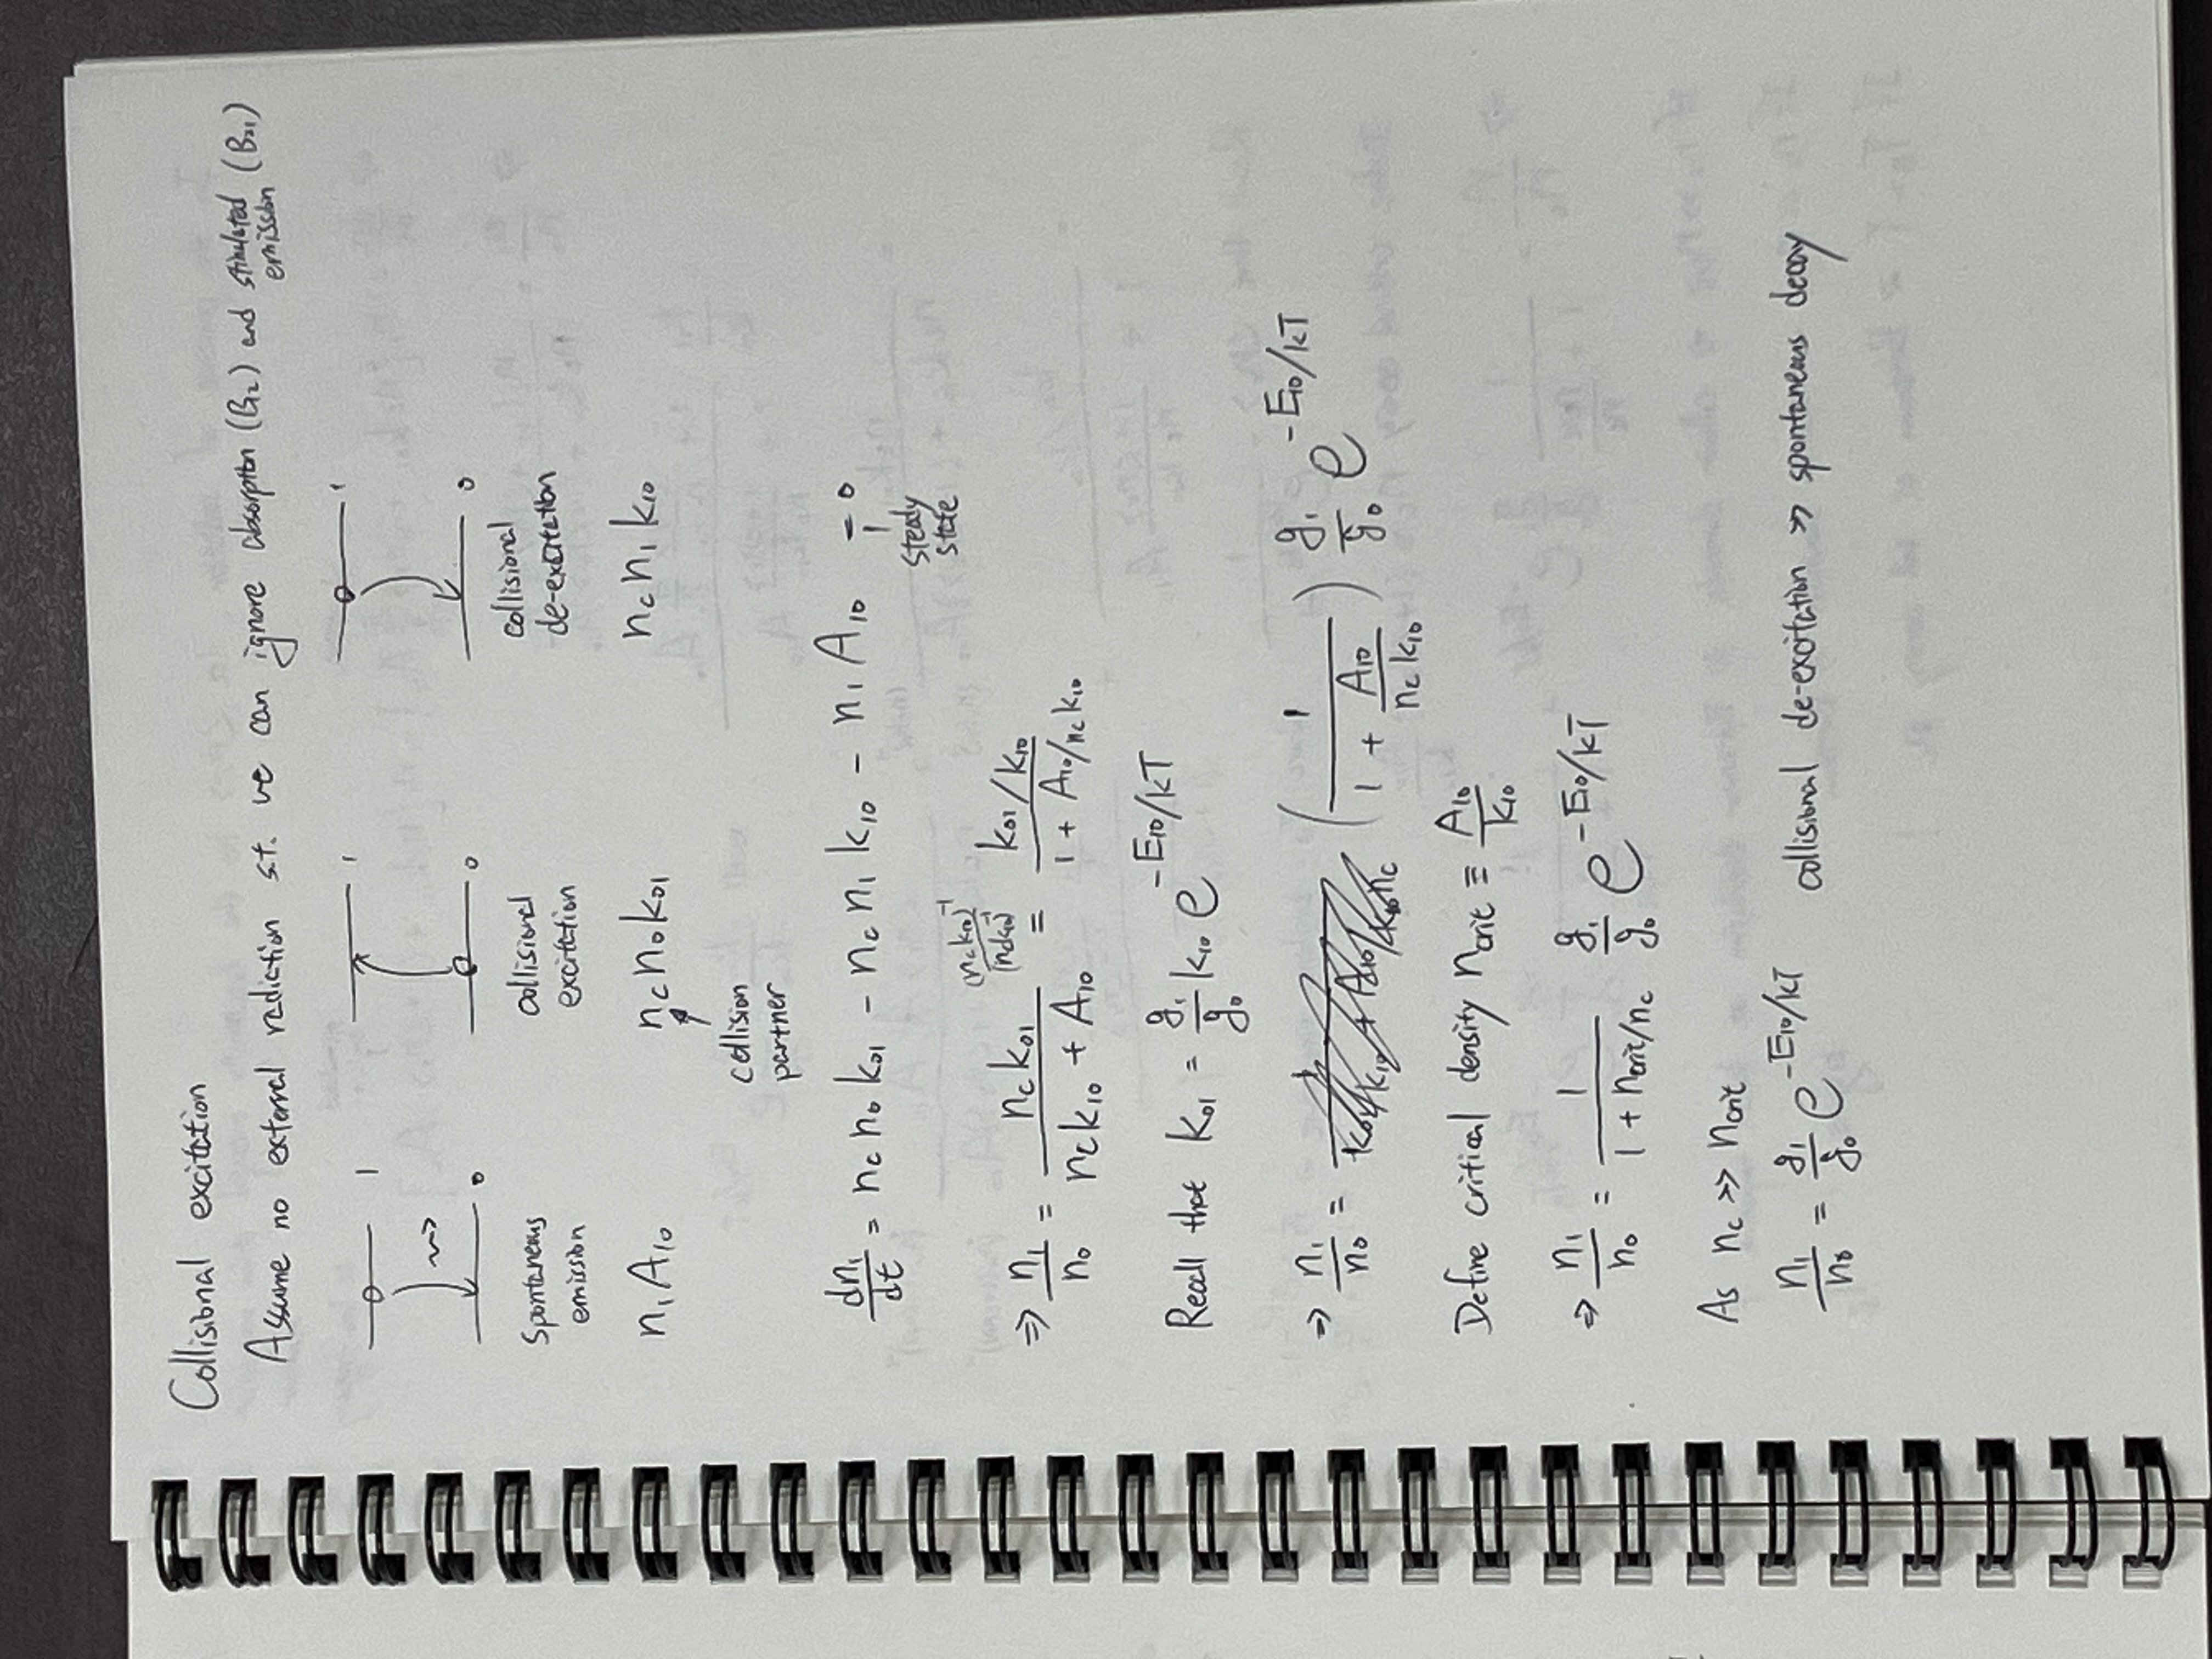 Collisional excitation
Assume no external radiation s.t. we can ignore absorption (B₁₂) and stimulated emission (B₂₁)
1 1 1
0 0 0
Spontaneous emission
collisional excitation
collisional de-excitation
n₁A₁₀
n_c n₀ k₀₁
n_c n₁ k₁₀
collision partner
dn₁/dt = n_c n₀ k₀₁ - n_c n₁ k₁₀ - n₁ A₁₀ = 0
steady state
⇒ n₁/n₀ = n_c k₀₁ / (n_c k₁₀ + A₁₀) (n_c k₁₀)⁻¹/(n_c k₁₀)⁻¹ = (k₀₁/k₁₀) / (1 + A₁₀/n_c k₁₀)
Recall that k₀₁ = g₁/g₀ k₁₀ e^(-E₁₀/kT)
⇒ n₁/n₀ = (1 / (1 + A₁₀/(n_c k₁₀))) g₁/g₀ e^(-E₁₀/kT)
Define critical density n_crit ≡ A₁₀/k₁₀
⇒ n₁/n₀ = 1/(1 + n_crit/n_c) g₁/g₀ e^(-E₁₀/kT)
As n_c >> n_crit
n₁/n₀ = g₁/g₀ e^(-E₁₀/kT) collisional de-excitation >> spontaneous decay